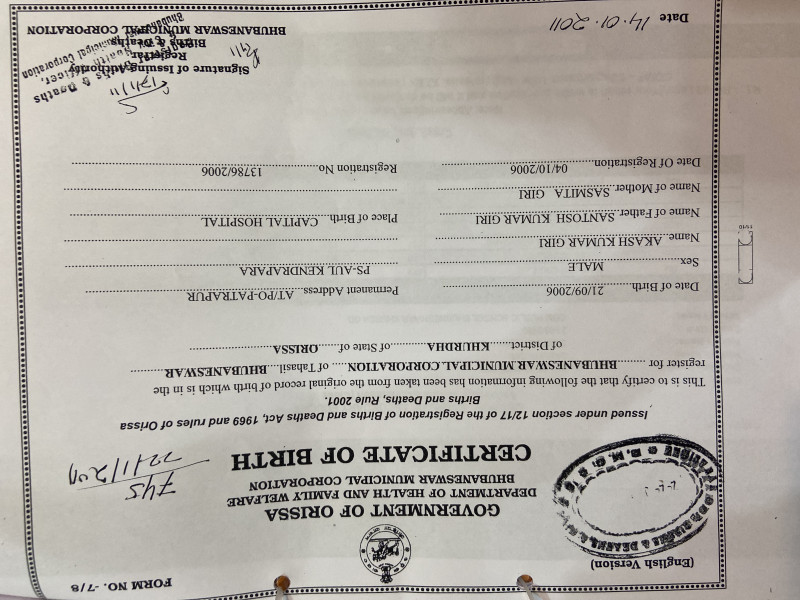 FORM NO. -7/8
(English Version)
GOVERNMENT OF ORISSA
DEPARTMENT OF HEALTH AND FAMILY WELFARE
BHUBANESWAR MUNICIPAL CORPORATION
CERTIFICATE OF BIRTH
745
22/1/2011
Issued under section 12/17 of the Registration of Births and Deaths Act, 1969 and rules of Orissa
Births and Deaths, Rule 2001.
This is to certify that the following information has been taken from the original record of birth which is in the
register for ........BHUBANESWAR MUNICIPAL CORPORATION..... of Tahasil.....BHUBANESWAR
of District......KHURDHA............of State of......ORISSA
Date of Birth. 21/09/2006 Permanent Address AT/PO-PATRAPUR
Sex MALE PS-AUL KENDRAPARA
Name AKASH KUMAR GIRI
Name of Father SANTOSH KUMAR GIRI Place of Birth CAPITAL HOSPITAL
Name of Mother SASMITA GIRI
Date Of Registration 04/10/2006 Registration No. 13786/2006
Signature of Issuing Authority
Registrar
Births & Deaths
BHUBANESWAR MUNICIPAL CORPORATION
Date 14.01.2011